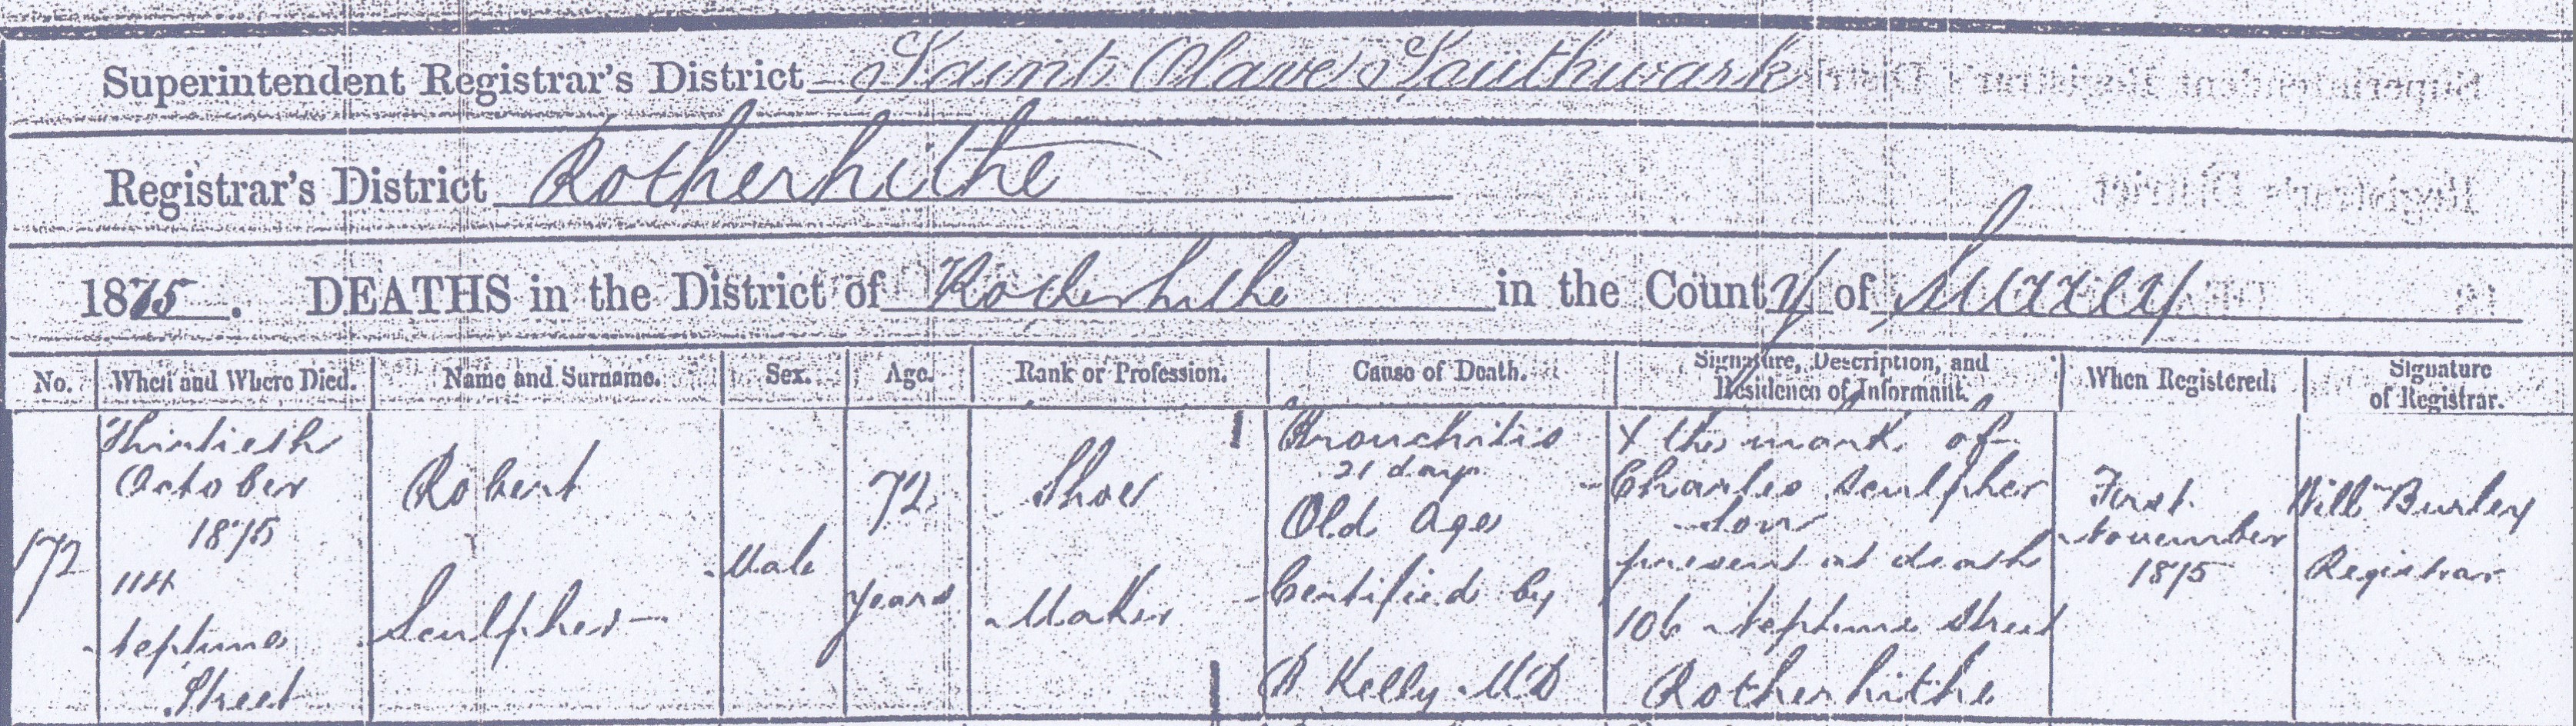 Superintendent Registrar's District Saint Olave Southwark
Registrar's District Rotherhithe
1875. DEATHS in the District of Rotherhithe in the County of Surrey
No.
When and Where Died.
Name and Surname.
Sex.
Age.
Rank or Profession.
Cause of Death.
Signature, Description, and
Residence of Informant.
When Registered.
Signature
of Registrar.
172
Thirtieth
October
1875
114
Neptune
Street
Robert
Sculpher
Male
72
years
Shoe
Maker
Bronchitis
21 days
Old Age
Certified by
Kelly MD
X the mark of
Charles Sculpher
Son
present at death
106 Neptune Street
Rotherhithe
First
November
1875
Willm Burley
Registrar